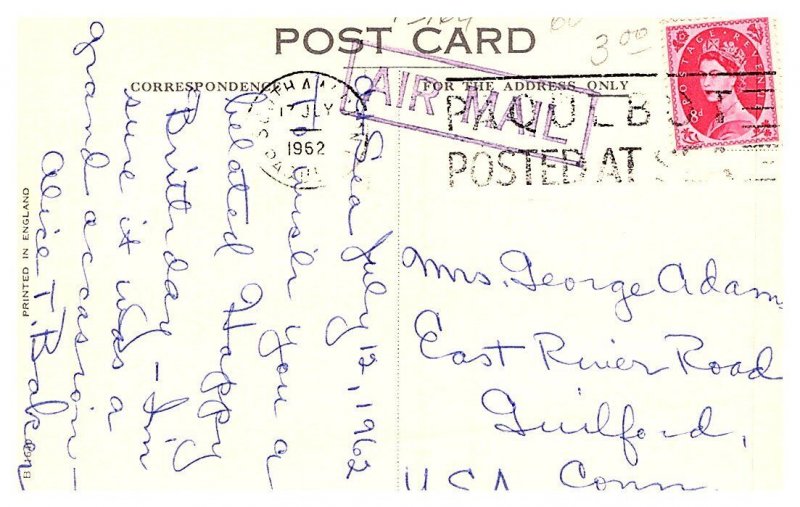 POST CARD
CORRESPONDENCE
FOR THE ADDRESS ONLY
3 00
AIR MAIL
SOUTHAMPTON
17 JLY
1962
PAQUEBOT
POSTED AT SEA
POSTAGE REVENUE
8d
At Sea July 12, 1962
To wish you a
belated Happy
Birthday - I'm
sure it was a
grand occasion -
Alice T. Baker
Mrs. George Adam
East River Road
Guilford,
USA Conn
PRINTED IN ENGLAND